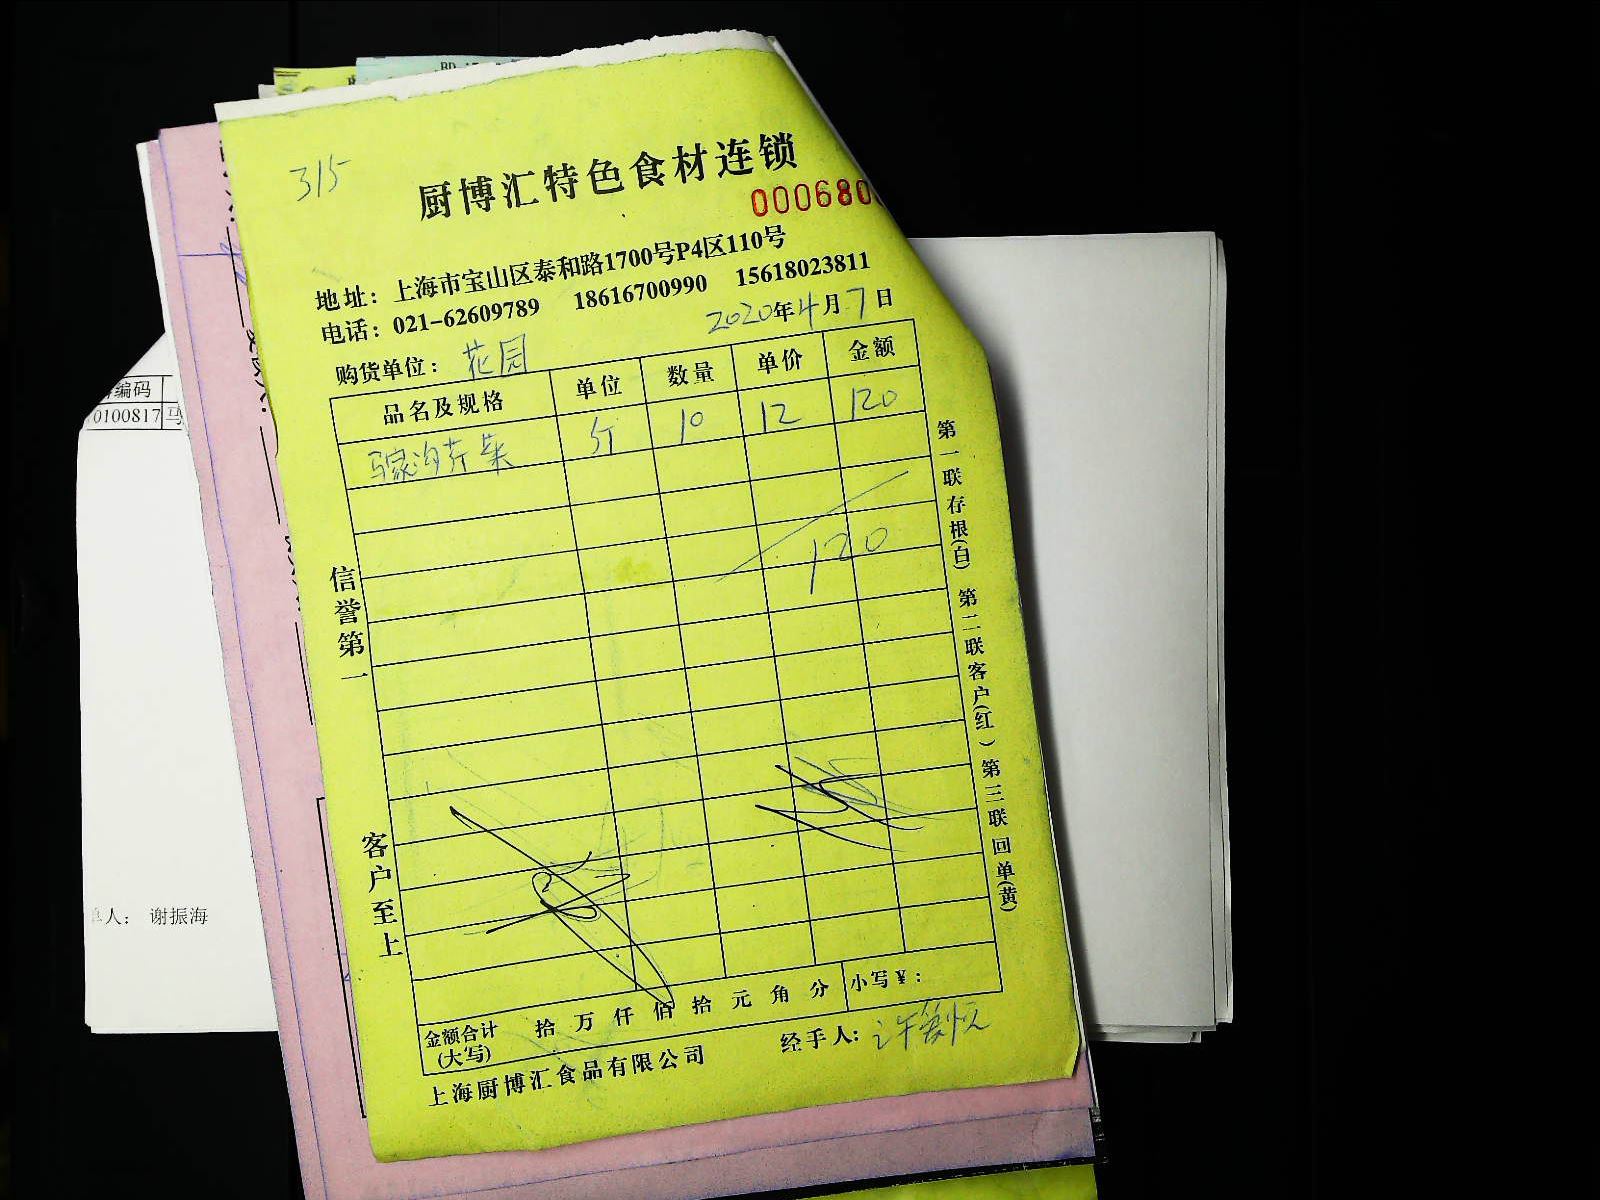 315
厨博汇特色食材连锁
000680
地址：上海市宝山区泰和路1700号P4区110号
电话：021-62609789 18616700990 15618023811
2020年4月7日
购货单位：花园
品名及规格 单位 数量 单价 金额
马家沟芹菜 斤 10 12 120
120
信誉第一
客户至上
第一联存根(白) 第二联客户(红) 第三联回单(黄)
金额合计(大写) 拾 万 仟 佰 拾 元 角 分 小写￥：
上海厨博汇食品有限公司
经手人：许
编码
0100817 马
人： 谢振海